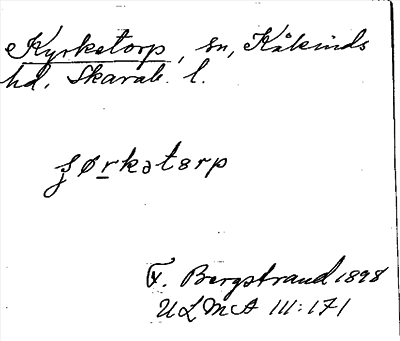 Kyrketorp, sn, Kåkinds
hd. Skarab. l.
ʂørkətɛrp
F. Bergstrand 1898
ULMA III:171